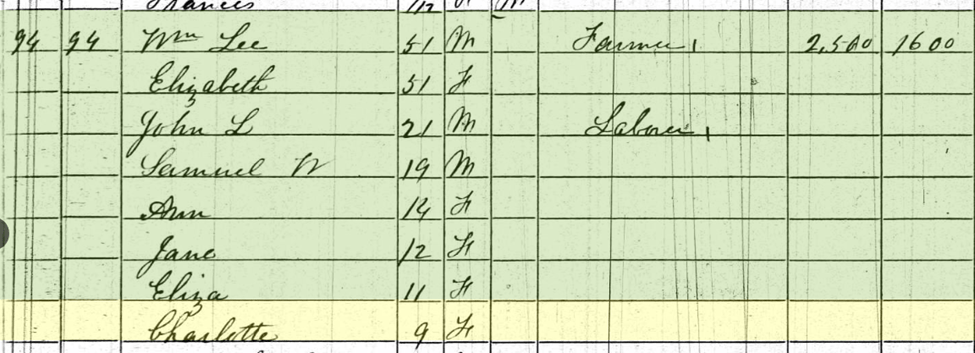 Frances 7/12 F
94 94 Wm Lee 51 M Farmer 2,500 1600
Elizabeth 51 F
John L 21 M Laborer
Samuel W 19 M
Ann 14 F
Jane 12 F
Eliza 11 F
Charlotte 9 F